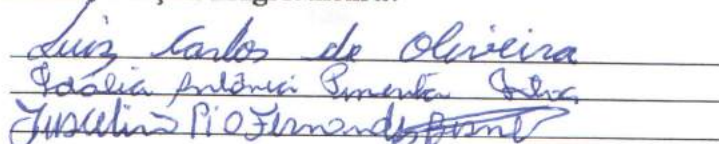 Luiz Carlos de Oliveira
Idália Antônia Pimenta Silva
Juscelino Pio Fernandes